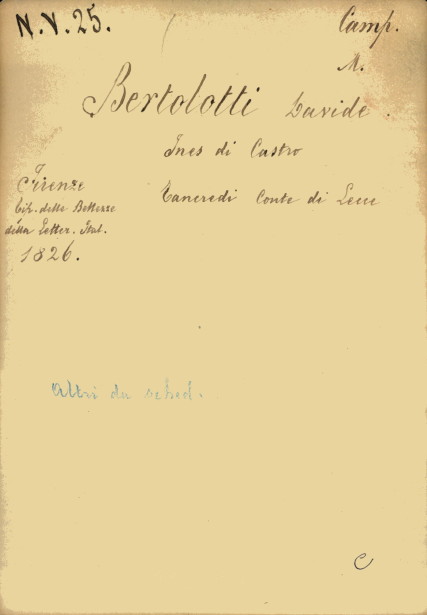 N.V.25.
Camp.
M.
Bertolotti Davide.
Ines di Castro
Tancredi Conte di Lecce
Firenze
Tip. delle Bellezze
della Letter. Ital.
1826.
Altri da sched.
C